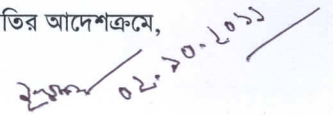 তির আদেশক্রমে,
০২.১০.২০১১